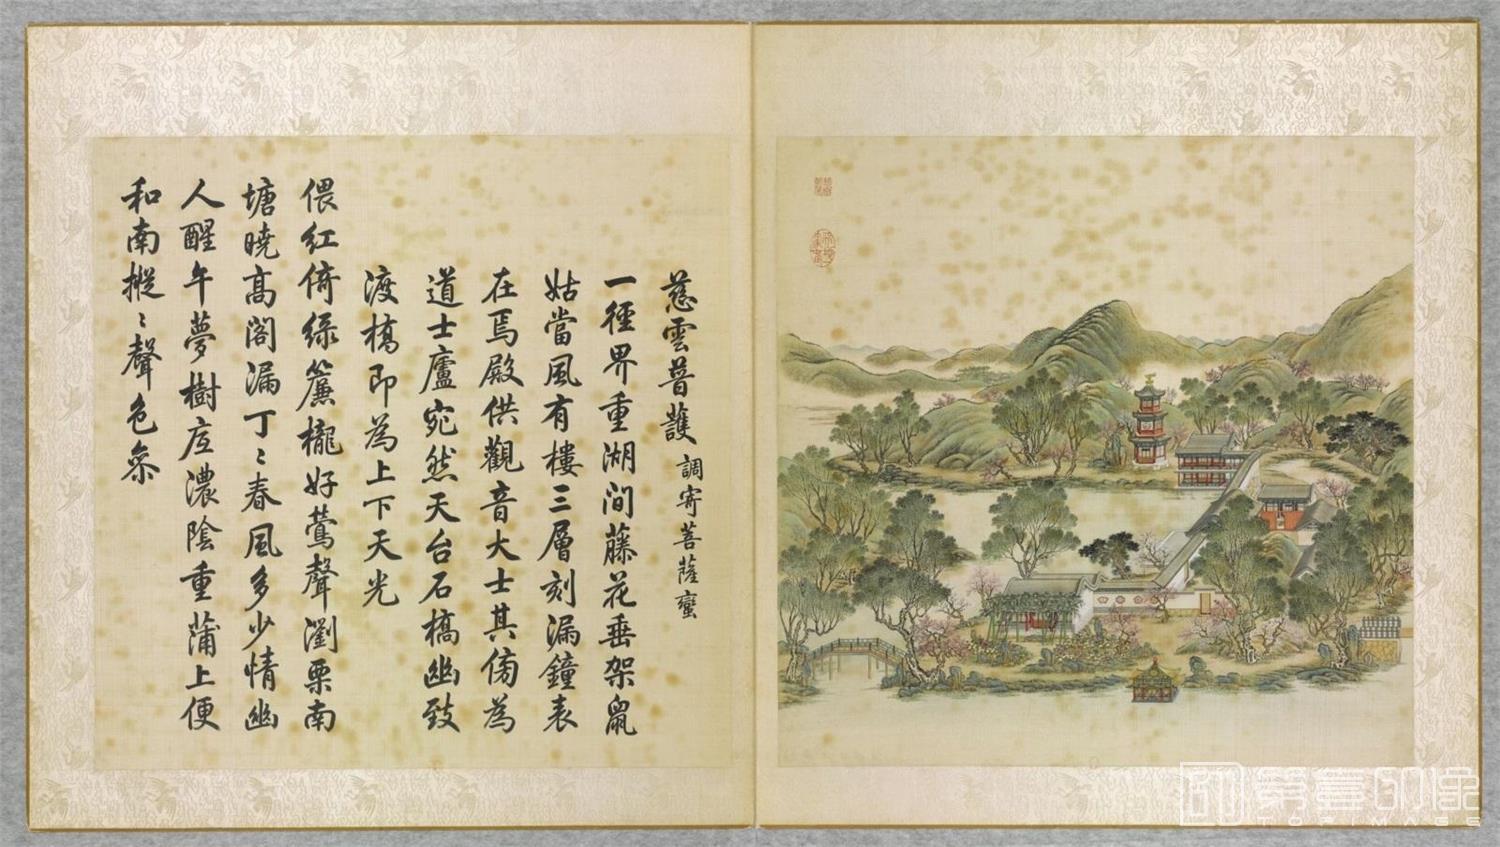 慈雲普護 調寄菩薩蠻
一徑界重湖間藤花垂架鼠
姑當風有樓三層刻漏鐘表
在焉殿供觀音大士其傍為
道士廬宛然天台石橋幽致
渡橋即為上下天光
偎紅倚綠簾櫳好鶯聲瀏栗南
塘曉高閣漏丁〻春風多少情幽
人醒午夢樹底濃陰重蒲上便
和南摐〻聲色參
第壹印像
TOPIMAGE